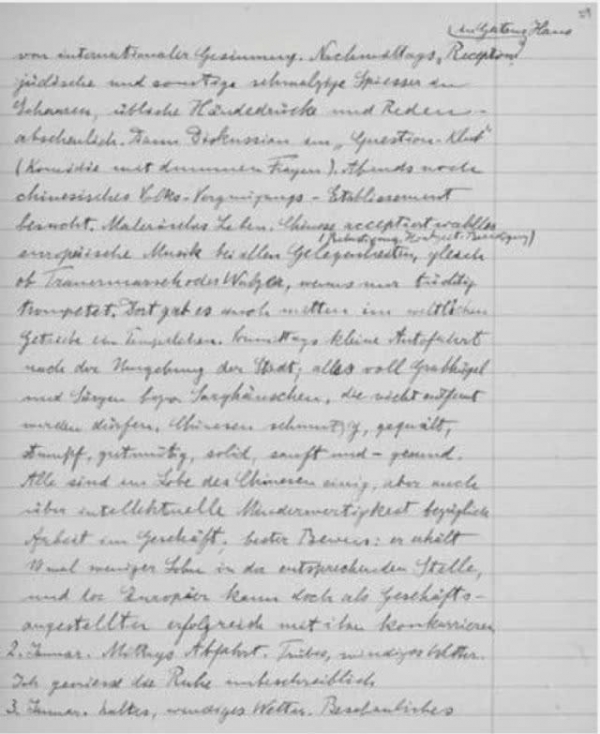 39
in Gartons Haus
von internationaler Gesinnung. Nachmittags „Reception“
jüdische und sonstige schmalzige Spiesser in
Scharen, übliche Händedrücke und Reden –
abscheulich. Dann Diskussion im „Question-Klub“
(Komödie mit dummen Fragen). Abends noch
chinesisches Volks-Vergnügungs-Etablissement
besucht. Malerisches Leben. Chinese acceptiert wahllos
(Beerdigung)
europäische Musik bei allen Gelegenheiten, gleich
ob Trauermarsch oder Walzer, wenns nur tüchtig
trompetet. Dort gab es auch mitten im weltlichen
Getriebe ein Tempelchen. Vormittags kleine Autofahrt
nach der Umgebung der Stadt; alles voll Grabhügel
und Särgen bzw. Sarghäuschen, die nicht entfernt
werden dürfen. Chinesen schmutzig, gequält,
stumpf, gutmütig, solid, sanft und – gesund.
Alle sind im Lobe des Chinesen einig, aber auch
über intellektuelle Minderwertigkeit bezüglich
Arbeit im Geschäft; bester Beweis: er erhält
10 mal weniger Lohn in der entsprechenden Stelle,
und der Europäer kann doch als Geschäfts-
angestellter erfolgreich mit ihm konkurrieren
2. Januar. Mittags Abfahrt. Trübes, windiges Wetter.
Ich geniesse die Ruhe unbeschreiblich
3. Januar. kaltes, windiges Wetter. Beschauliches